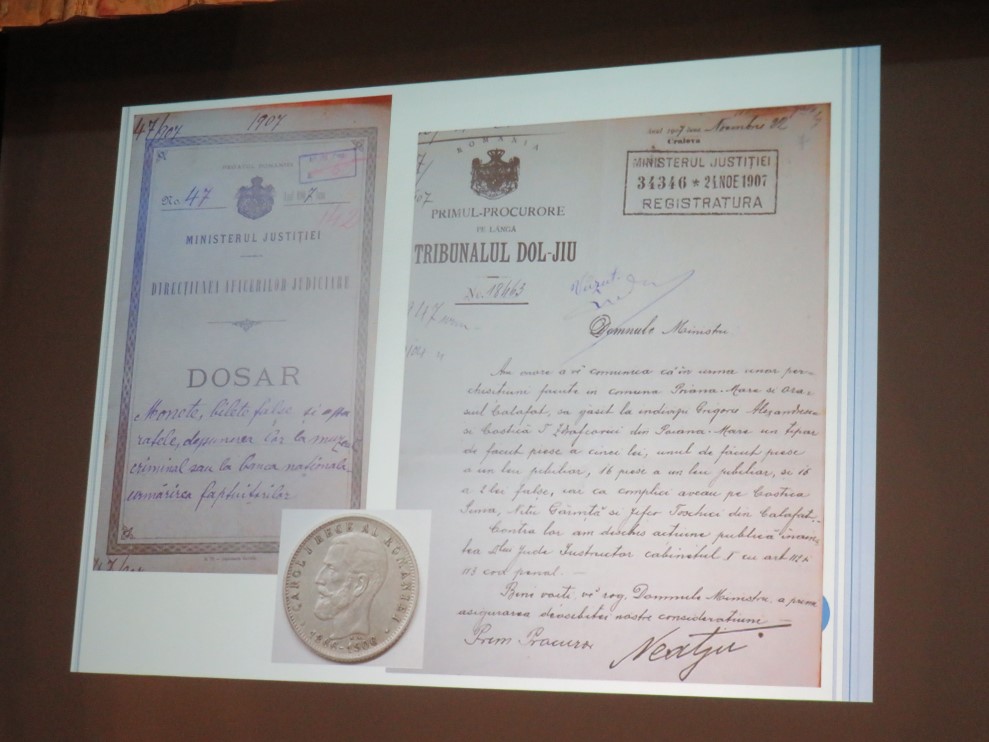 47/707
1907
No. 47
MINISTERUL JUSTIȚIEI
DIRECȚIUNEA AFACERILOR JUDICIARE
DOSAR
Monete, bilete false și apa
ratele, depunerea lor la muzeu
criminal sau la banca națională
urmărirea făptuitorilor
CAROL I REGE AL ROMANIEI
1866-1906
ROMANIA
PRIMUL-PROCURORE
PE LÂNGĂ
TRIBUNALUL DOL-JIU
No. 18463
1907 Noembre 22
Craiova
MINISTERUL JUSTIȚIEI
34346 * 24 NOE 1907
REGISTRATURA
Văzut
Domnule Ministru
Am onore a vĕ comunica că în urma unor per-
chisițiuni facute in comuna Poiana-Mare si ora-
sul Calafat, sa găsit la indivizii Grigore Alexandrescu
si Costică T. din Poiana-Mare un tipar
de facut piese a cinci lei, unul de făcut piese
a un leu jubiliar, 16 piese a un leu jubiliar, si 16
a 2 lei false, iar ca complici aveau pe Costica
Nitu si din Calafat.
Contra lor am deschis actiune publică înain-
tea Jude Instructor cabinetul I cu art 112 x
113 cod penal. —
Bine voiti, vĕ rog, Domnule Ministru a primi
asigurarea deosebitei nostre consideratiuni —
Prim Procuror